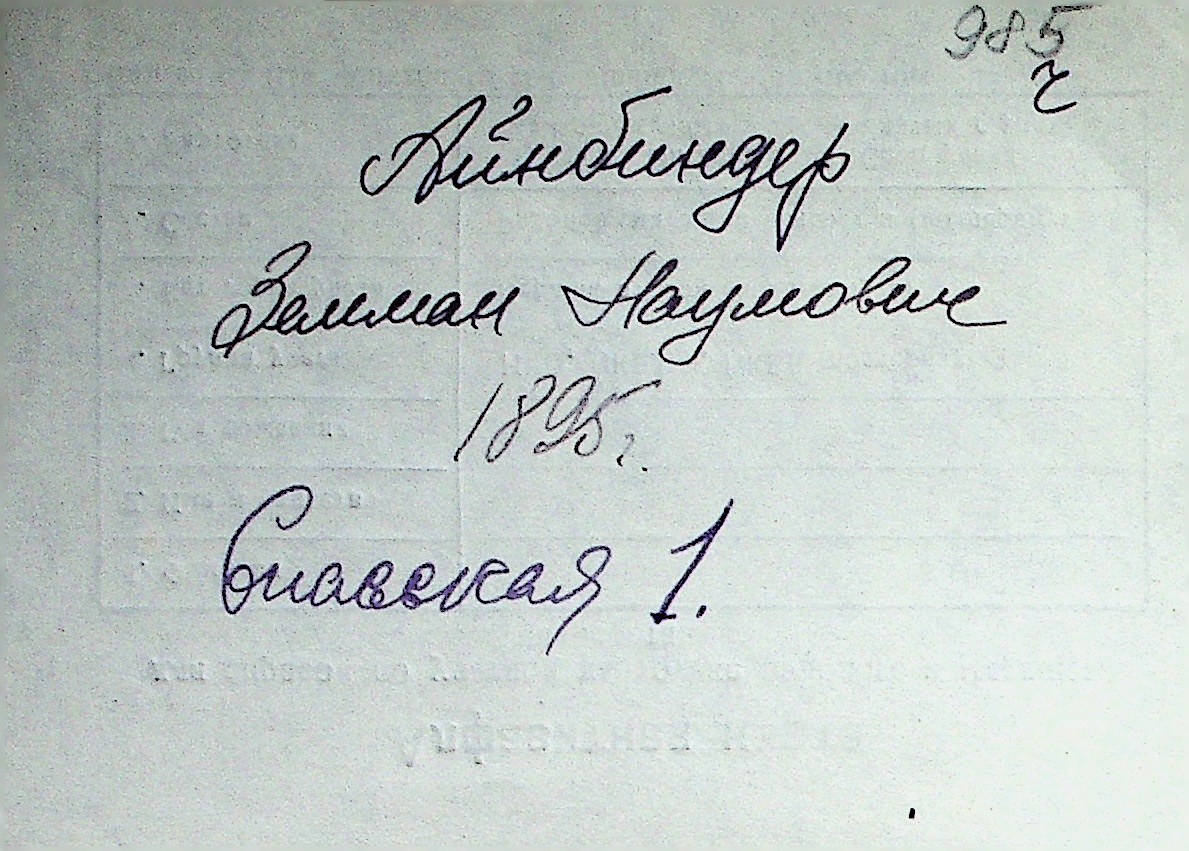 985
ч
Айнбиндер
Зелман Наумович
1895 г.
Спасская 1.